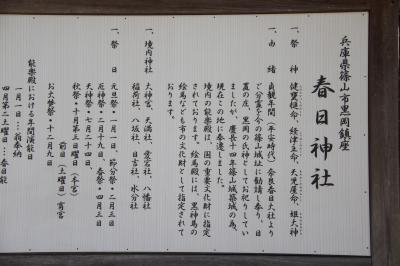 兵庫県篠山市黒岡鎮座
春日神社
一、祭神　健甕槌命、経津主命、天児屋命、姫大神
一、由緒　貞観年間（平安時代）奈良春日大社より
ご分霊を今の篠山城址に勧請し奉り、日
置の庄、黒岡の氏神としてお祀りしてい
ましたが、慶長十四年篠山城築城の為、
現在この地に奉遷しました。
境内の能楽殿は、国の重要文化財に指定
されております。絵馬殿には、黒神馬の
絵馬なども市の文化財として指定されて
おります。
一、境内神社　大神宮、天満社、愛宕社、八幡社
稲荷社、八坂社、日吉社、水分社
一、祭日　元旦祭・一月一日、節分祭・二月三日
厄神祭・二月十九日、春祭・四月三日
天神祭・七月二十四日、
秋祭・十月第三日曜日（本宮）
前日（土曜日）宵宮
お火焚祭・十二月九日
能楽殿における年間演能日
一月一日…翁奉納
四月第二土曜日…春日能